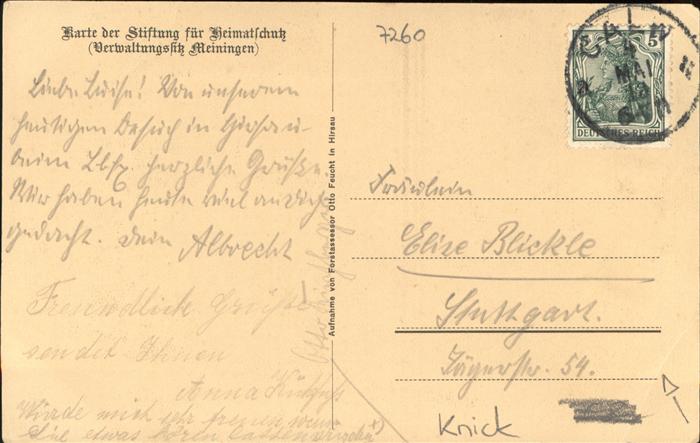 Karte der Stiftung für Heimatschutz
(Verwaltungssitz Meiningen)
7260
CALW
4
MAI
13
5
DEUTSCHES REICH
Liebe Luise! Von unserem
heutigen Besuch in Hirsau u.
beim herzliche Grüße.
Wir haben heute viel an Dich
gedacht. Dein Albrecht
Freundliche Grüße
sendet Ihnen
Anna
Würde mich sehr freuen, wenn
Sie etwas hören lassen
Aufnahme von Forstassessor Otto Feucht in Hirsau
Fräulein
Elise Blickle
Stuttgart.
Jägerstr. 54.
Knick